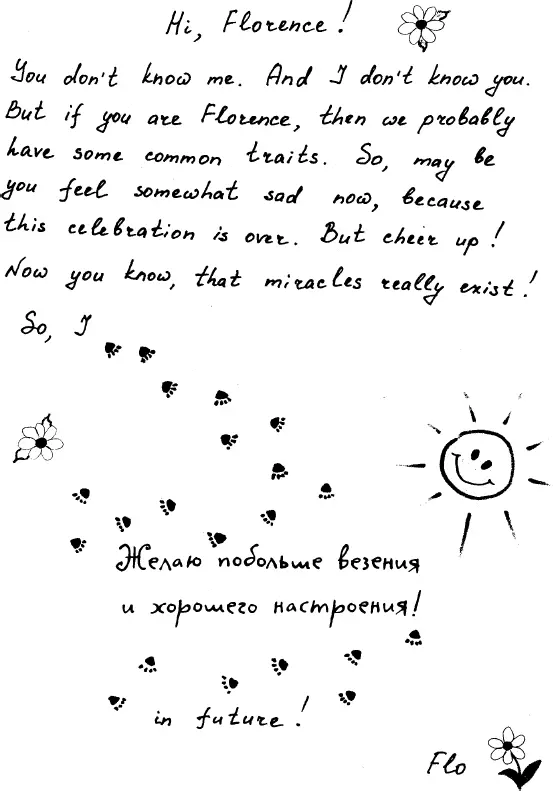 Hi, Florence!
You don't know me. And I don't know you.
But if you are Florence, then we probably
have some common traits. So, may be
you feel somewhat sad now, because
this celebration is over. But cheer up!
Now you know, that miracles really exist!
So, I
Желаю побольше везения
и хорошего настроения!
in future!
Flo